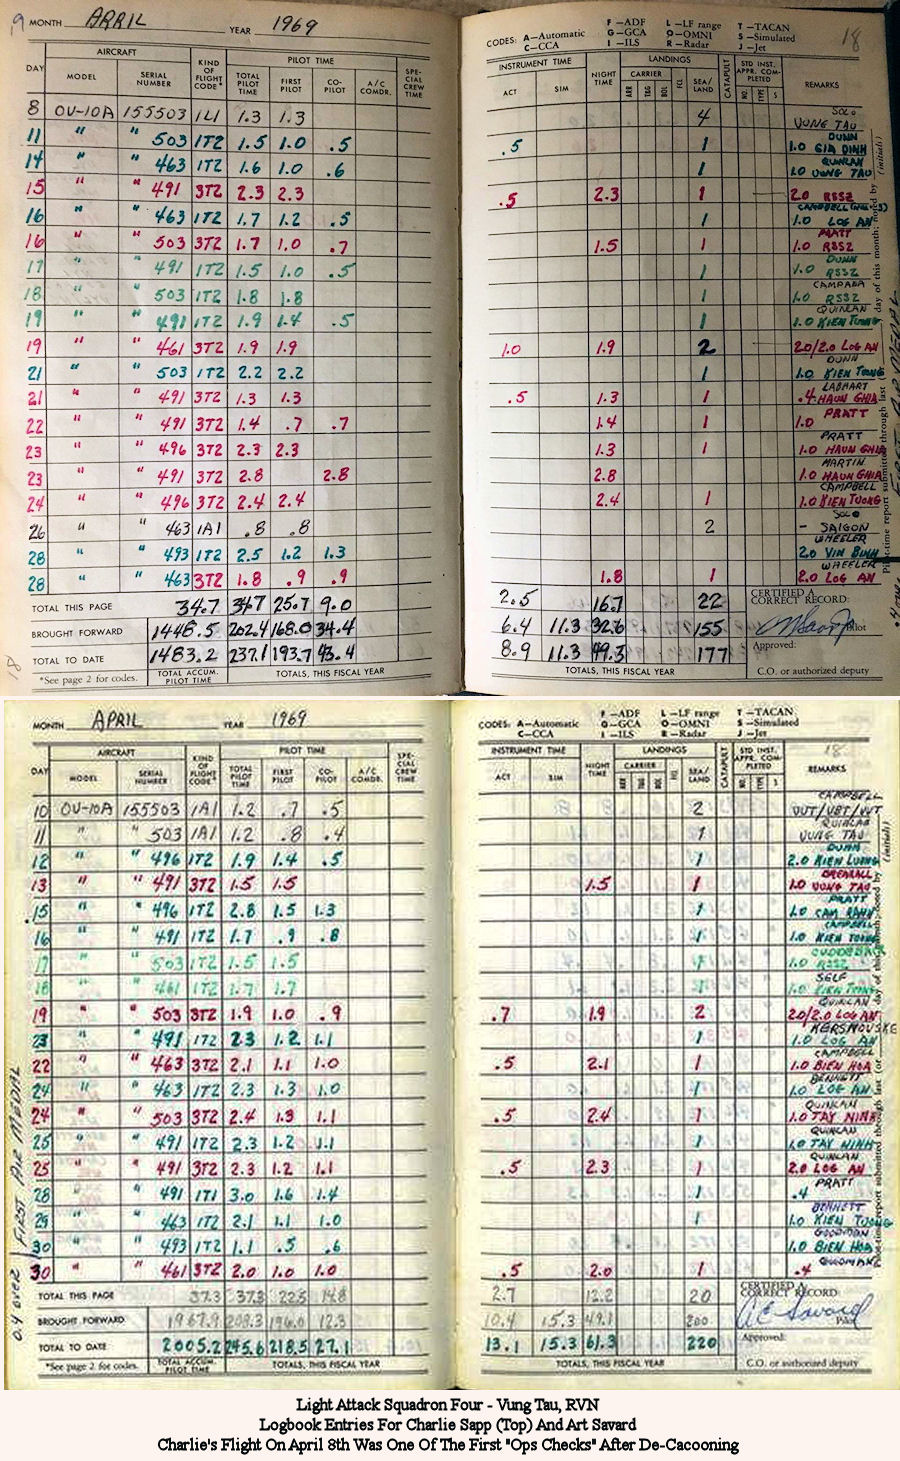 19 MONTH APRIL YEAR 1969
CODES: A—Automatic C—CCA F—ADF G—GCA I—ILS L—LF range O—OMNI R—Radar T—TACAN S—Simulated J—Jet 18
AIRCRAFT KIND OF FLIGHT CODE* PILOT TIME SPECIAL CREW TIME
DAY MODEL SERIAL NUMBER TOTAL PILOT TIME FIRST PILOT CO-PILOT A/C COMDR.
INSTRUMENT TIME NIGHT TIME LANDINGS CATAPULT STD INST. APPR. COMPLETED REMARKS
ACT SIM CARRIER ARR T&G BOL FCL SEA/LAND NO. TYPE S
8 OV-10A 155503 1L1 1.3 1.3 4 SOLO VUNG TAU
11 " " 503 1T2 1.5 1.0 .5 .5 1 DUNN 1.0 GIA DINH
14 " " 463 1T2 1.6 1.0 .6 1 QUINLAN 1.0 VUNG TAU
15 " " 491 3T2 2.3 2.3 .5 2.3 1 2.0 RSSZ
16 " " 463 1T2 1.7 1.2 .5 1 CAMPBELL 1.0 LOG AN
16 " " 503 3T2 1.7 1.0 .7 1.5 1 PRATT 1.0 RSSZ
17 " " 491 1T2 1.5 1.0 .5 1 DUNN 1.0 RSSZ
18 " " 503 1T2 1.8 1.8 1 CAMPANA 1.0 RSSZ
19 " " 491 1T2 1.9 1.4 .5 1 QUINLAN 1.0 KIEN TUONG
19 " " 461 3T2 1.9 1.9 1.0 1.9 2 2.0/2.0 LOG AN
21 " " 503 1T2 2.2 2.2 1 DUNN 1.0 KIEN TUONG
21 " " 491 3T2 1.3 1.3 .5 1.3 1 LABHART .4 HAUN GHIA
22 " " 491 3T2 1.4 .7 .7 1.4 1 PRATT 1.0
23 " " 496 3T2 2.3 2.3 1.3 1 PRATT 1.0 HAUN GHIA
23 " " 491 3T2 2.8 2.8 2.8 MARTIN 1.0 HAUN GHIA
24 " " 496 3T2 2.4 2.4 2.4 1 CAMPBELL 1.0 KIEN TUONG
26 " " 463 1A1 .8 .8 2 SOLO - SAIGON
28 " " 493 1T2 2.5 1.2 1.3 WHEELER 2.0 VIN BINH
28 " " 463 3T2 1.8 .9 .9 1.8 1 WHEELER 2.0 LOG AN
TOTAL THIS PAGE 34.7 34.7 25.7 9.0 2.5 16.7 22 CERTIFIED A CORRECT RECORD:
BROUGHT FORWARD 1448.5 202.4 168.0 34.4 6.4 11.3 32.6 155 Pilot
TOTAL TO DATE 1483.2 237.1 193.7 43.4 8.9 11.3 49.3 177 Approved:
*See page 2 for codes. TOTAL ACCUM. PILOT TIME TOTALS, THIS FISCAL YEAR TOTALS, THIS FISCAL YEAR C.O. or authorized deputy
18
MONTH APRIL YEAR 1969
CODES: A—Automatic C—CCA F—ADF G—GCA I—ILS L—LF range O—OMNI R—Radar T—TACAN S—Simulated J—Jet
AIRCRAFT KIND OF FLIGHT CODE* PILOT TIME SPECIAL CREW TIME
DAY MODEL SERIAL NUMBER TOTAL PILOT TIME FIRST PILOT CO-PILOT A/C COMDR.
INSTRUMENT TIME NIGHT TIME LANDINGS CATAPULT STD INST. APPR. COMPLETED 18
ACT SIM CARRIER ARR T&G BOL FCL SEA/LAND NO. TYPE S REMARKS
10 OV-10A 155503 1A1 1.2 .7 .5 2 CAMPBELL VVT/VBT/VVT
11 " " 503 1A1 1.2 .8 .4 1 QUINLAN VUNG TAU
12 " " 496 1T2 1.9 1.4 .5 1 DUNN 2.0 KIEN LUONG
13 " " 491 3T2 1.5 1.5 1.5 1 1.0 VUNG TAU
15 " " 496 1T2 2.8 1.5 1.3 1 PRATT 1.0 CAM RANH
16 " " 491 1T2 1.7 .9 .8 1 CAMPBELL 1.0 KIEN TUONG
17 " " 503 1T2 1.5 1.5 1 1.0 RSSZ
18 " " 461 1T2 1.7 1.7 SELF 1.0 KIEN TUONG
19 " " 503 3T2 1.9 1.0 .9 .7 1.9 2 QUINLAN 2.0/2.0 LOG AN
23 " " 491 1T2 2.3 1.2 1.1 1 KERSNOUSKE 1.0 LOG AN
22 " " 463 3T2 2.1 1.1 1.0 .5 2.1 1 CAMPBELL 1.0 BIEN HOA
24 " " 463 1T2 2.3 1.3 1.0 1 BENNETT 1.0 LOG AN
24 " " 503 3T2 2.4 1.3 1.1 .5 2.4 1 QUINLAN 1.0 TAY NINH
25 " " 491 1T2 2.3 1.2 1.1 1 QUINLAN 1.0 TAY NINH
25 " " 491 3T2 2.3 1.2 1.1 .5 2.3 1 QUINLAN 2.0 LOG AN
28 " " 491 1T1 3.0 1.6 1.4 1 PRATT .4
29 " " 463 1T2 2.1 1.1 1.0 1 BENNETT 1.0 KIEN TUONG
30 " " 493 1T2 1.1 .5 .6 GOODMAN 1.0 BIEN HOA
30 " " 461 3T2 2.0 1.0 1.0 .5 2.0 1 GOODMAN .4
TOTAL THIS PAGE 37.3 37.3 22.5 14.8 2.7 12.2 20 CERTIFIED A CORRECT RECORD:
BROUGHT FORWARD 1967.9 208.3 196.0 12.3 10.4 15.3 49.1 200 A E Savard Pilot
TOTAL TO DATE 2005.2 245.6 218.5 27.1 13.1 15.3 61.3 220 Approved:
*See page 2 for codes. TOTAL ACCUM. PILOT TIME TOTALS, THIS FISCAL YEAR TOTALS, THIS FISCAL YEAR C.O. or authorized deputy
0.4 OVER FIRST AIR MEDAL
Light Attack Squadron Four - Vung Tau, RVN
Logbook Entries For Charlie Sapp (Top) And Art Savard
Charlie's Flight On April 8th Was One Of The First "Ops Checks" After De-Cacooning